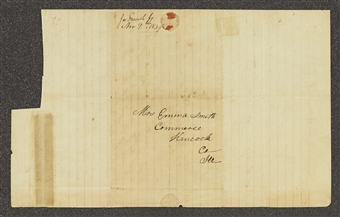 Jos Smith Jr
Nov 9th 1839
Mrs Emma Smith
Commerce
Hancock
Co—
Ill—